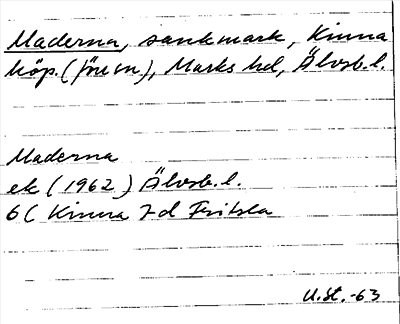 Maderna, sankmark, Kinna
köp. (förs m), Marks hd, Älvsb. l.
Maderna
ek (1962) Älvsb. l.
6C Kinna 7d Fritsla
U.St. -63